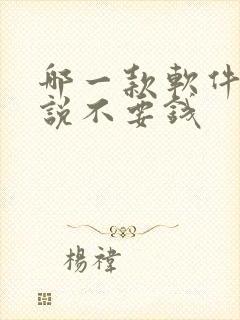 哪一款軟件
說不要錢
楊禕